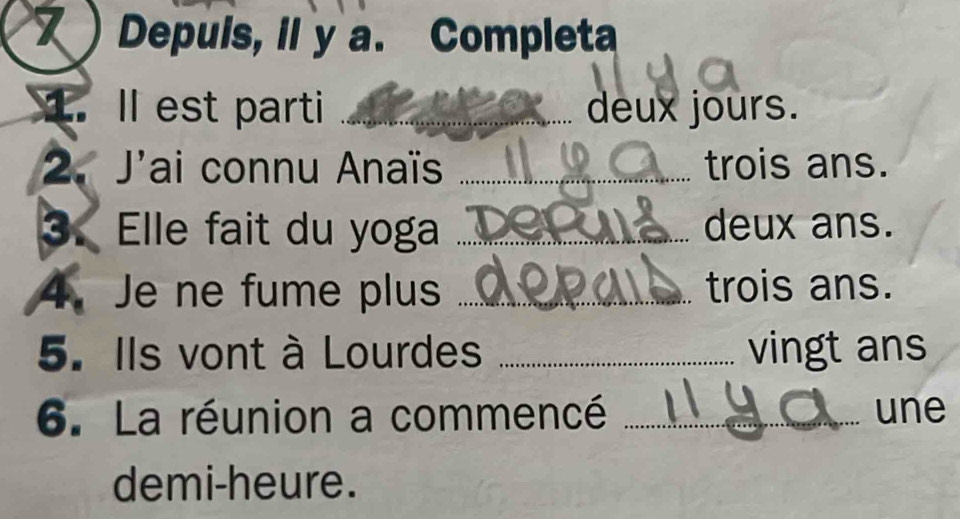 7 Depuis, il y a. Completa
Il y a
1. Il est parti deux jours.
2. J'ai connu Anaïs Il y a trois ans.
3. Elle fait du yoga Depuis deux ans.
4. Je ne fume plus depuis trois ans.
5. Ils vont à Lourdes vingt ans
6. La réunion a commencé Il y a une
demi-heure.